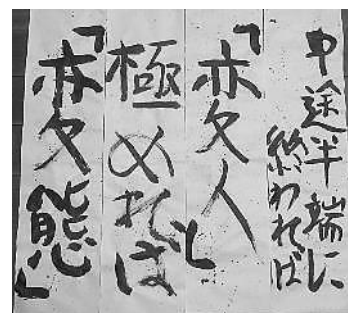 中途半端に、
終われば
「変人」と
極めれば
「変態」